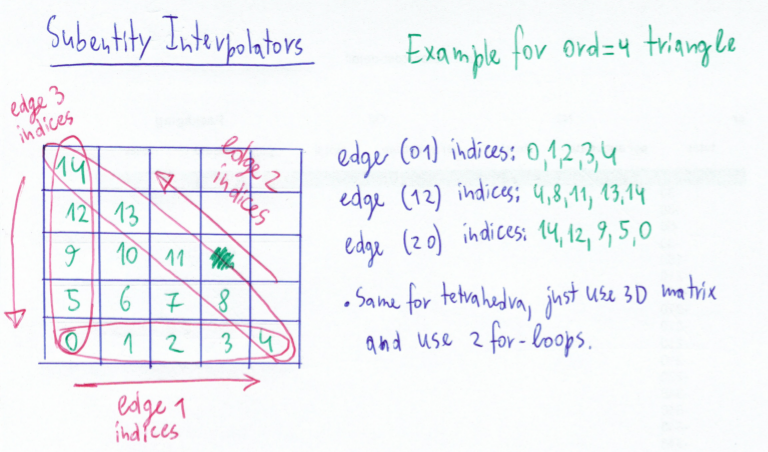 Subentity Interpolators
Example for ord=4 triangle
edge 3
indices
edge 2
indices
14
12 13
9 10 11
5 6 7 8
0 1 2 3 4
edge 1
indices
edge (01) indices: 0,1,2,3,4
edge (12) indices: 4,8,11,13,14
edge (20) indices: 14,12,9,5,0
• Same for tetrahedra, just use 3D matrix
and use 2 for-loops.